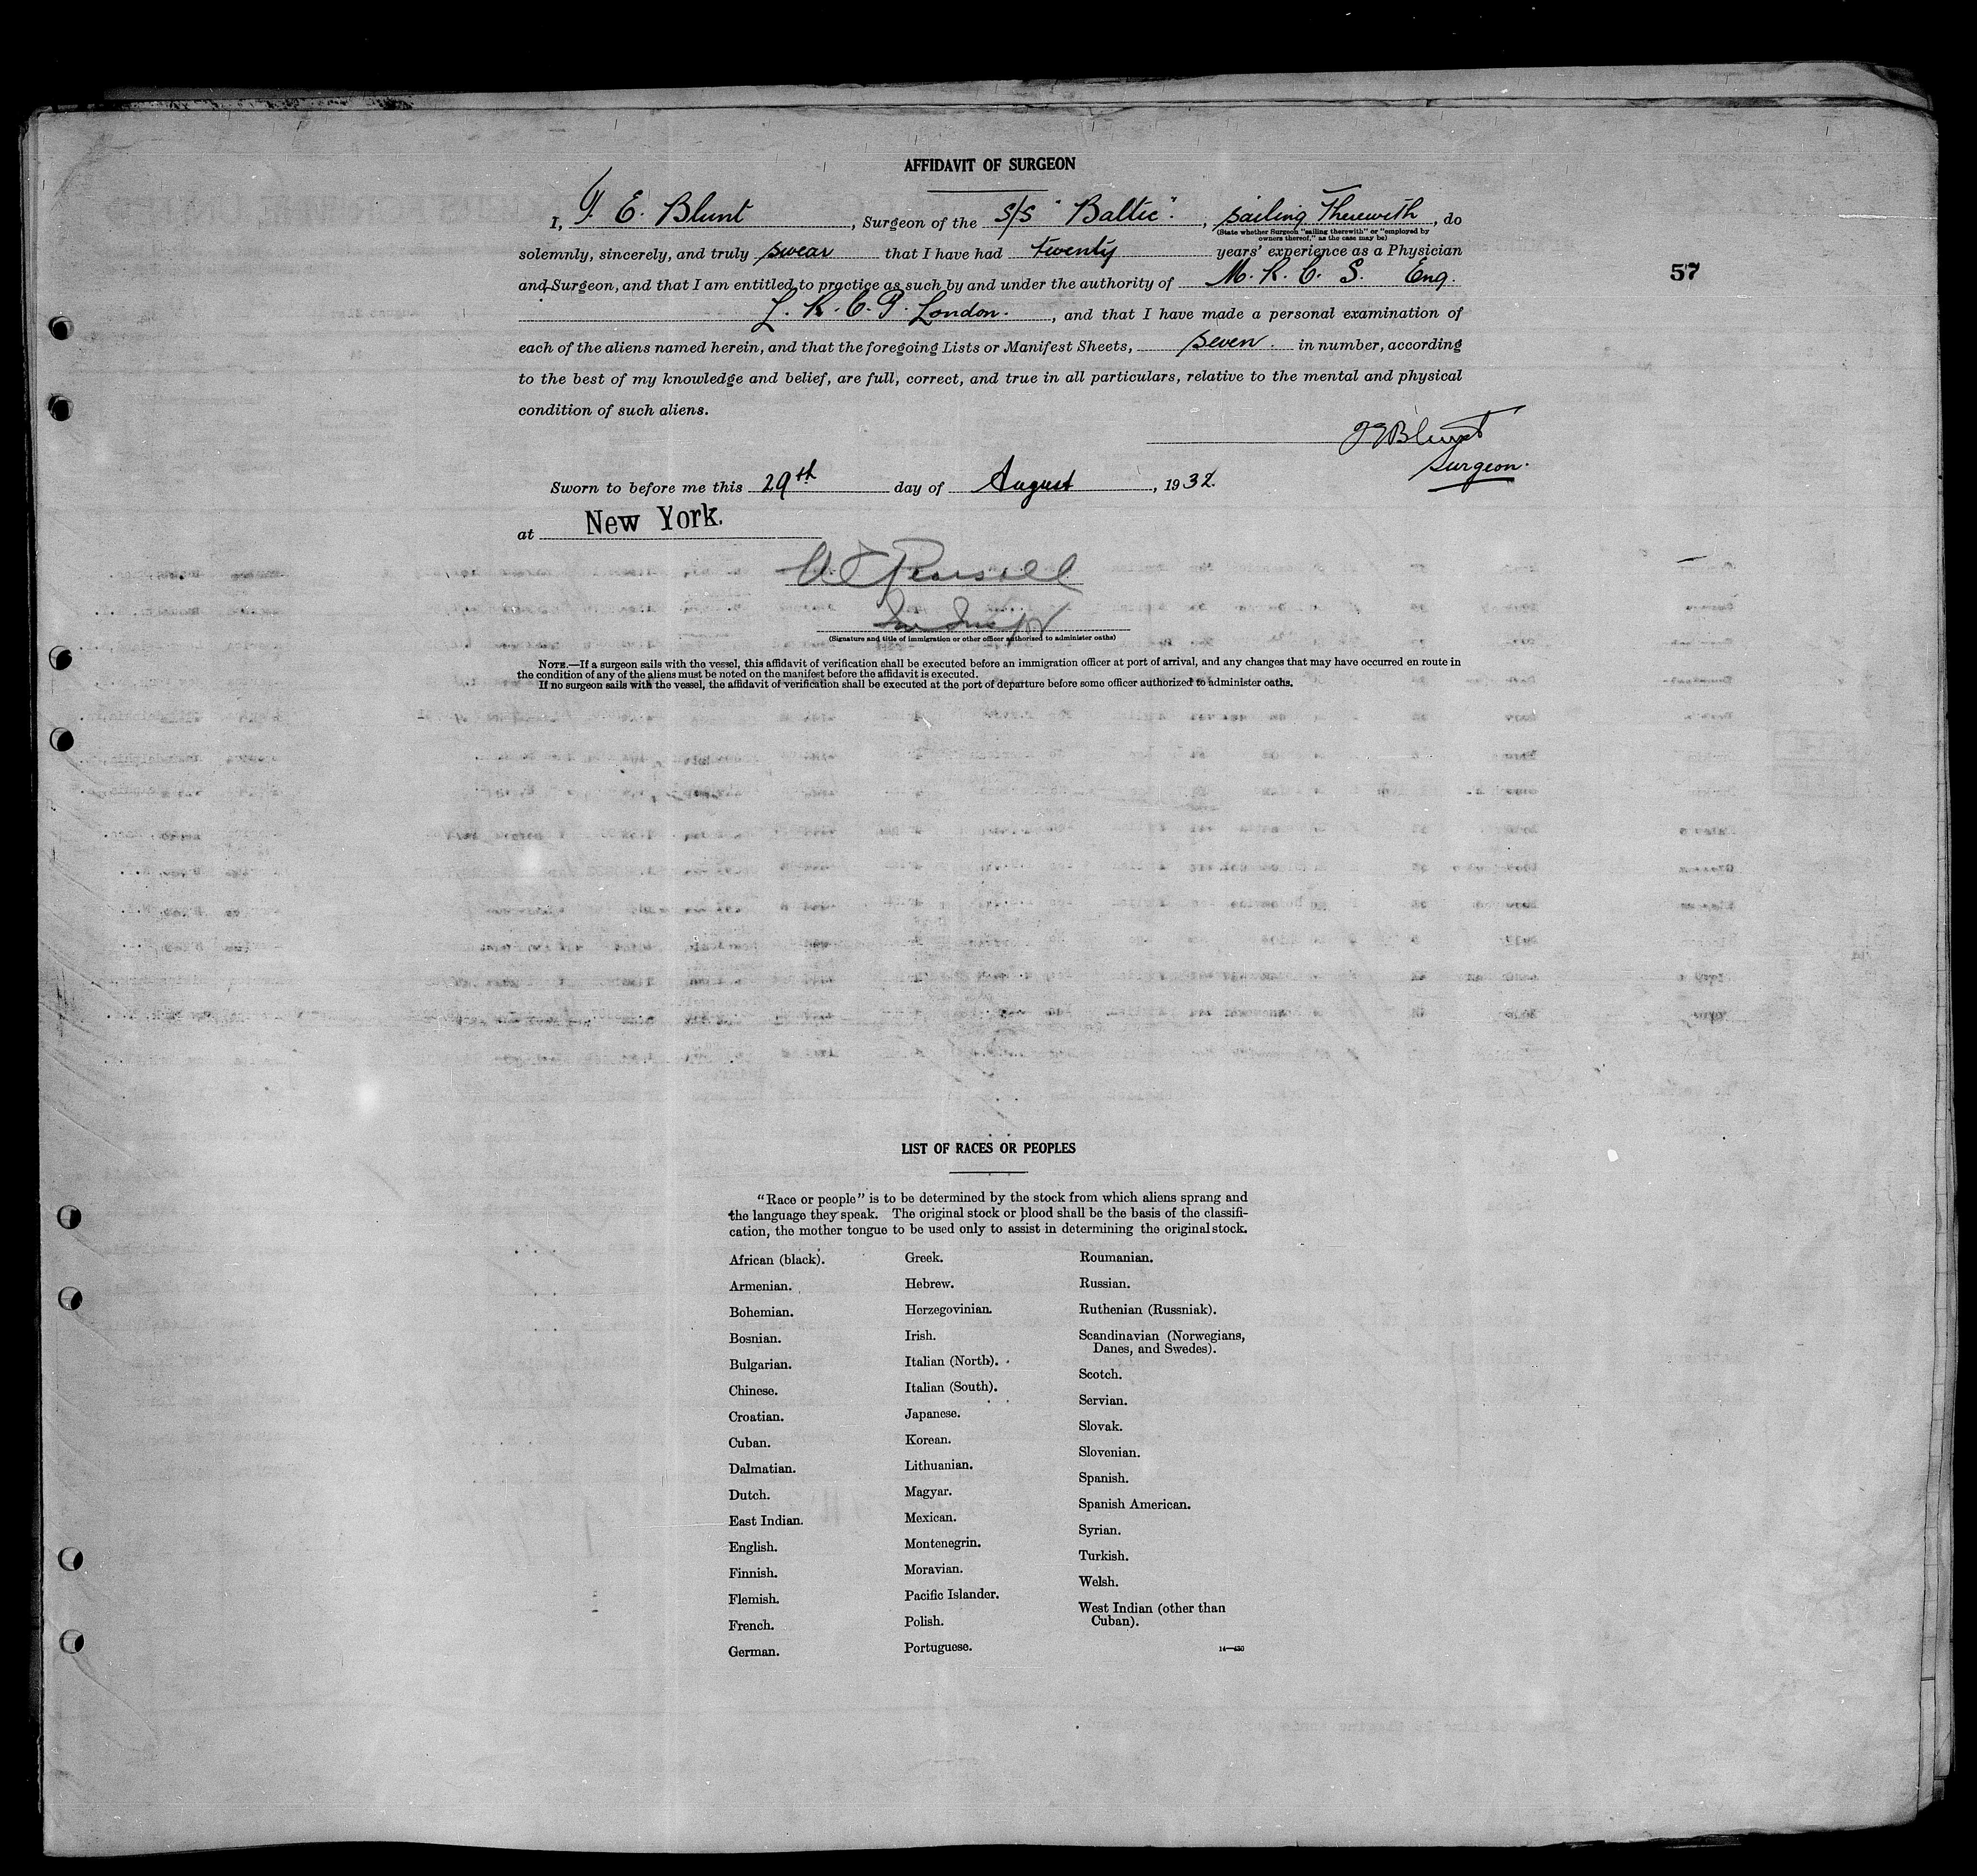 AFFIDAVIT OF SURGEON
I, T. E. Blunt, Surgeon of the S/S "Baltic", sailing Therewith, do
(State whether Surgeon "sailing therewith" or "employed by
owners thereof," as the case may be)
solemnly, sincerely, and truly swear that I have had twenty years' experience as a Physician
and Surgeon, and that I am entitled to practice as such by and under the authority of M. R. C. S. Eng.
L. R. C. P. London., and that I have made a personal examination of
each of the aliens named herein, and that the foregoing Lists or Manifest Sheets, seven. in number, according
to the best of my knowledge and belief, are full, correct, and true in all particulars, relative to the mental and physical
condition of such aliens.
57
Blunt
Surgeon.
Sworn to before me this 29th day of August, 1932.
at New York.
(Signature and title of immigration or other officer authorized to administer oaths)
NOTE.—If a surgeon sails with the vessel, this affidavit of verification shall be executed before an immigration officer at port of arrival, and any changes that may have occurred en route in
the condition of any of the aliens must be noted on the manifest before the affidavit is executed.
If no surgeon sails with the vessel, the affidavit of verification shall be executed at the port of departure before some officer authorized to administer oaths.
LIST OF RACES OR PEOPLES
"Race or people" is to be determined by the stock from which aliens sprang and
the language they speak. The original stock or blood shall be the basis of the classifi-
cation, the mother tongue to be used only to assist in determining the original stock.
African (black).
Armenian.
Bohemian.
Bosnian.
Bulgarian.
Chinese.
Croatian.
Cuban.
Dalmatian.
Dutch.
East Indian.
English.
Finnish.
Flemish.
French.
German.
Greek.
Hebrew.
Herzegovinian.
Irish.
Italian (North).
Italian (South).
Japanese.
Korean.
Lithuanian.
Magyar.
Mexican.
Montenegrin.
Moravian.
Pacific Islander.
Polish.
Portuguese.
Roumanian.
Russian.
Ruthenian (Russniak).
Scandinavian (Norwegians,
Danes, and Swedes).
Scotch.
Servian.
Slovak.
Slovenian.
Spanish.
Spanish American.
Syrian.
Turkish.
Welsh.
West Indian (other than
Cuban).